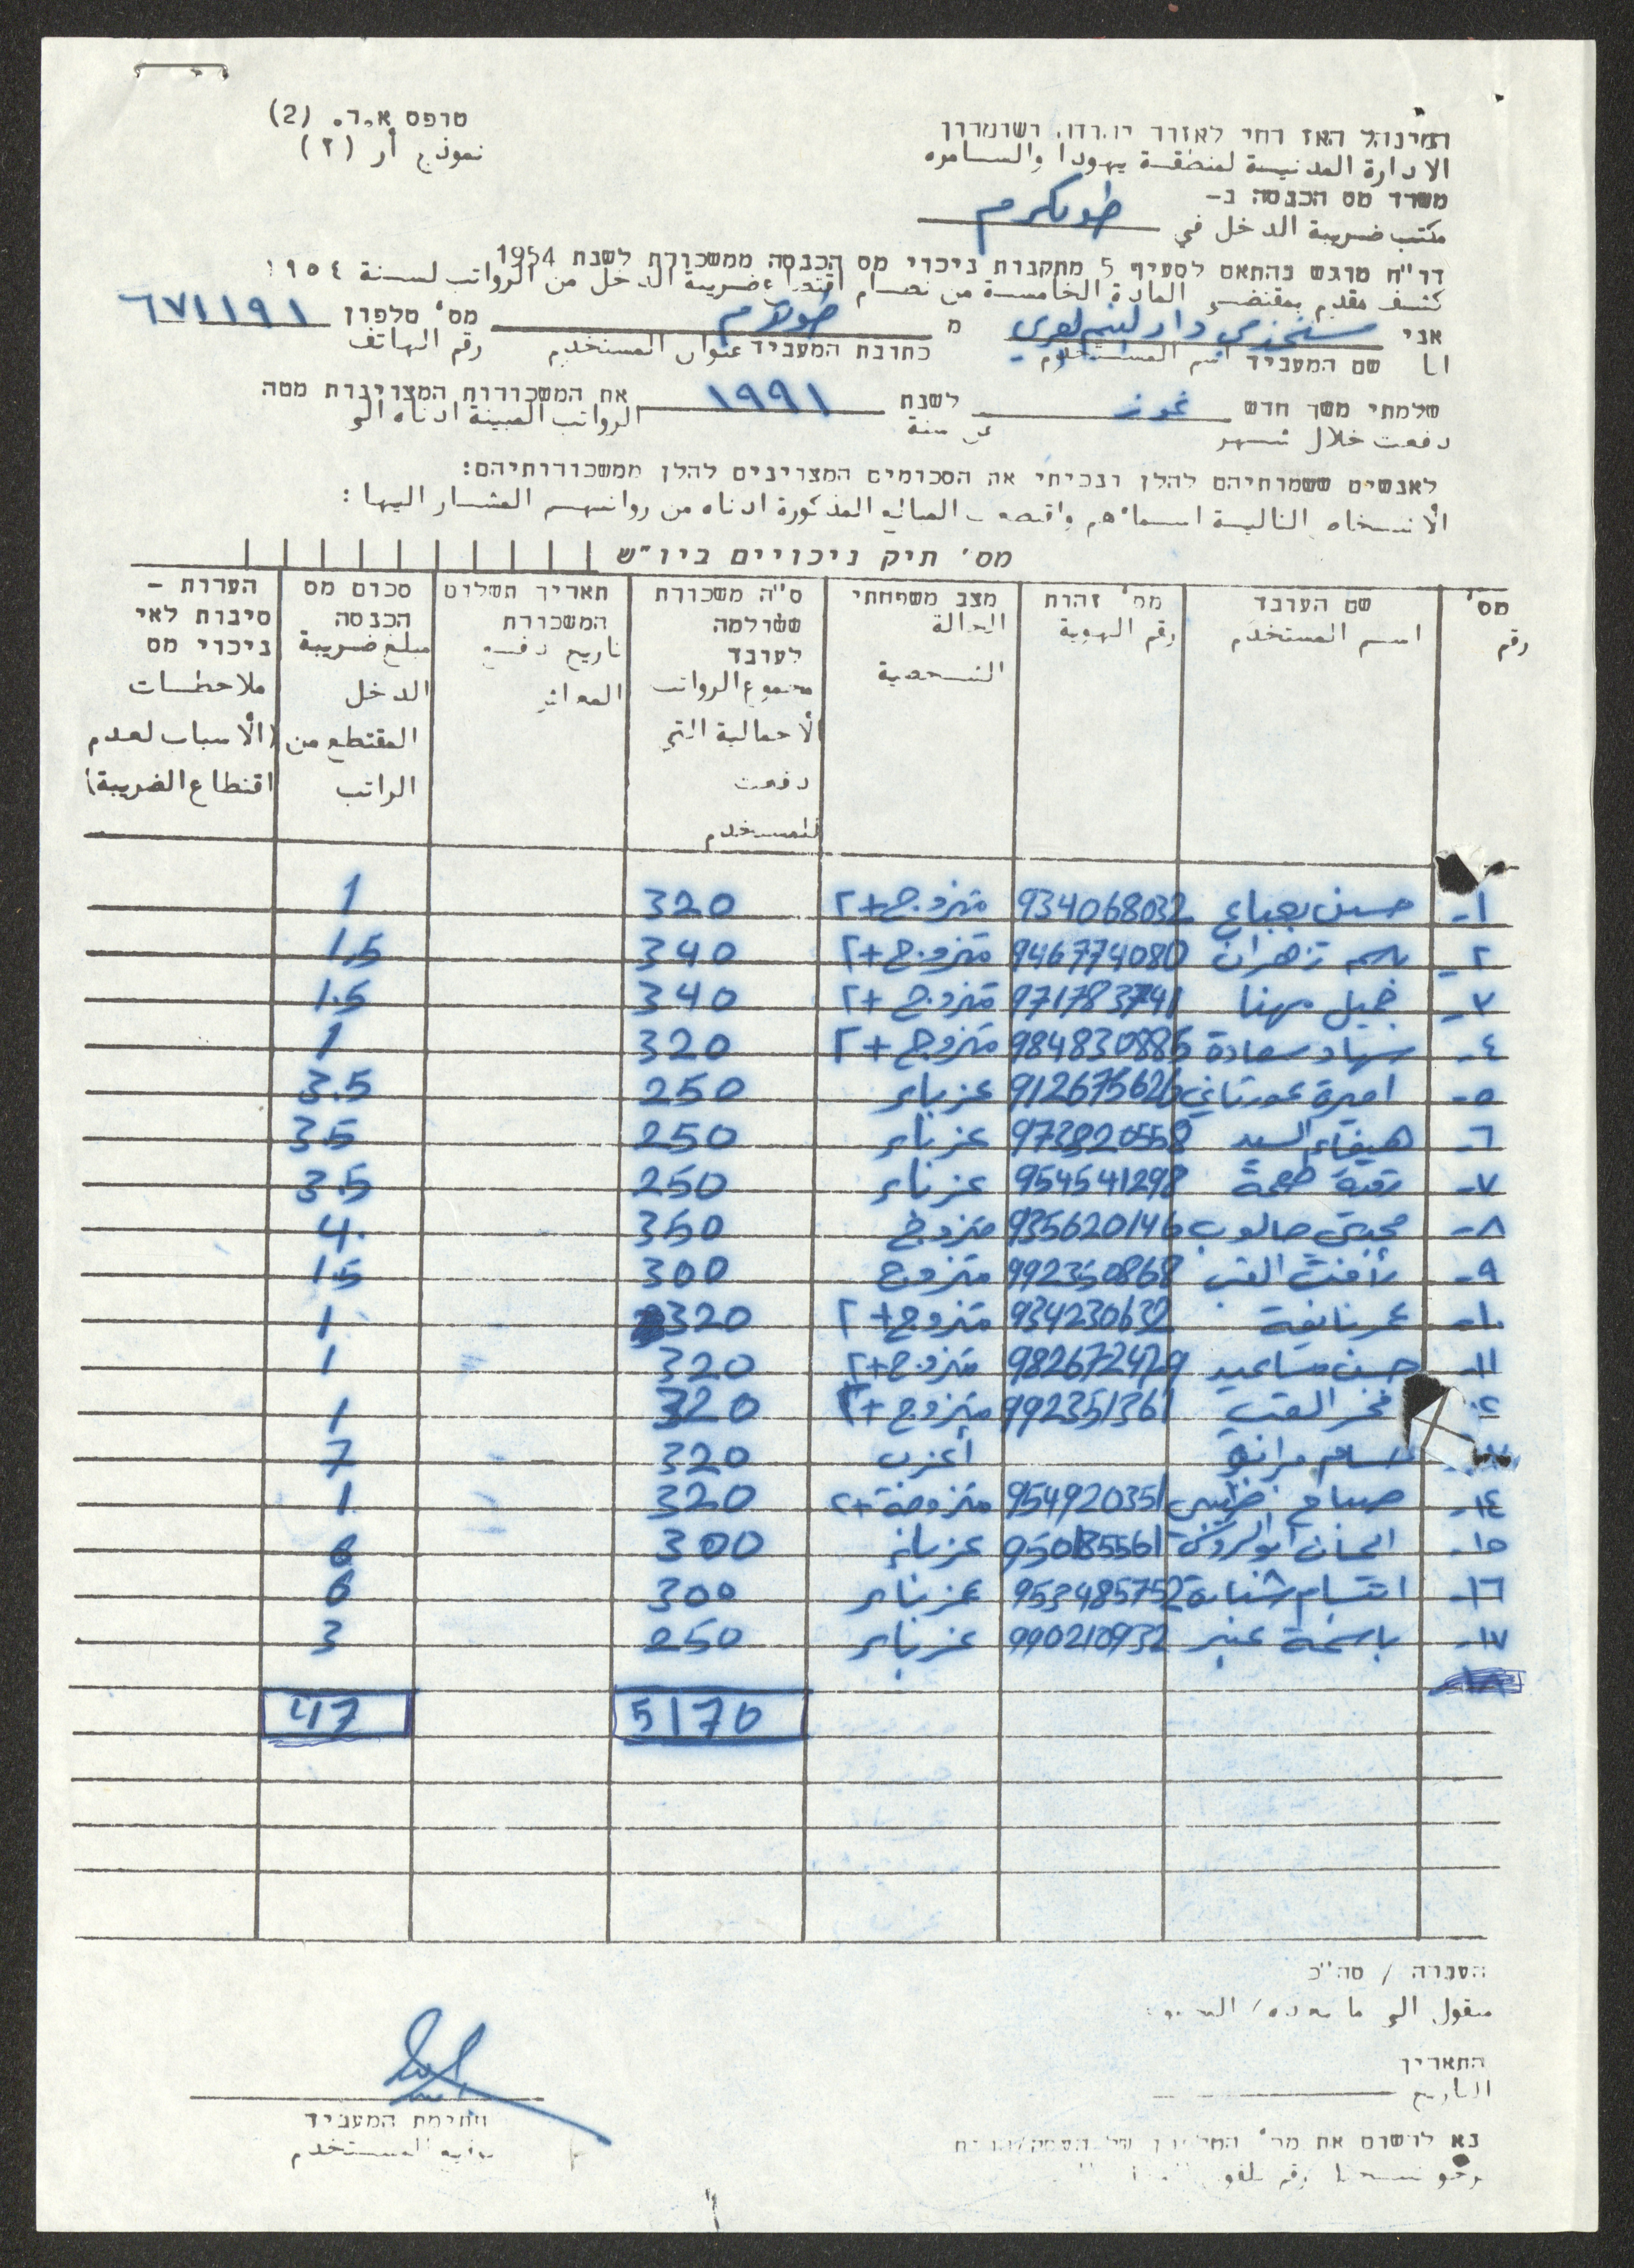 טופס א.ד. (2)
نموذج أر (٢)
המינהל האזרחי לאזור יהודה ושומרון
الادارة المدنية لمنطقة يهودا والسامره
משרד מס הכנסה ב-
مكتب ضريبة الدخل في طولكرم
דו"ח מוגש בהתאם לסעיף 5 מתקנות ניכוי מס הכנסה ממשכורת לשנת 1954
كشف مقدم بمقتضى المادة الخامسة من نظام اقتطاع ضريبة الدخل من الرواتب لسنة ١٩٥٤
אני مستخدمي دار اليتيم العربي מ طولكرم מס' טלפון ٦٧١١٩١
انا שם המעביד اسم المستخدم כתובת המעביד عنوان المستخدم رقم الهاتف
שלמתי משך חדש تموز לשנת ١٩٩١ את המשכורות המצויינות מטה
دفعت خلال شهر عن سنة الرواتب المبينة ادناه الى
לאנשים ששמותיהם להלן וניכיתי את הסכומים המצויינים להלן ממשכורותיהם:
الأشخاص التالية اسماؤهم واقتطعت المبالغ المذكورة ادناه من رواتبهم المشار اليها :
מס' תיק ניכויים ביו"ש
מס' שם העובד מס' זהות מצב משפחתי ס"ה משכורת ששולמה לעובד תאריך תשלום המשכורת סכום מס הכנסה הערות - סיבות לאי ניכוי מס
رقم اسم المستخدم رقم الهوية الحالة الشخصية مجموع الرواتب الاجمالية التي دفعت للمستخدم تاريخ دفع المعاش مبلغ ضريبة الدخل المقتطع من الراتب ملاحظات (الأسباب لعدم اقتطاع الضريبة)
١- حسين بعباع 934068032 متزوج+٢ 320 1
٢- باسم زهران 946774080 متزوج+٢ 340 1.5
٣- خليل مهنا 971783741 متزوج+٢ 340 1.5
٤- سهاد سعادة 984830886 متزوج+٢ 320 1
٥- اميرة عورتاني 912675626 عزباء 250 3.5
٦- هيفاء السيد 973820558 عزباء 250 3.5
٧- رقية طعمة 954541298 عزباء 250 3.5
٨- 935620146 متزوج 350 4
٩- رأفت القب 992350868 متزوج 300 1.5
١٠- عمر نايفة 934230632 متزوج+٢ 320 1
١١- حسن مساعيد 982672429 متزوج+٢ 320 1
فخر القب 992351361 متزوج+٢ 320 1
أعزب 320 7
١٤- صباح 954920351 متزوجة+٢ 320 1
١٥- الحان ابو الروس 950185561 عزباء 300 6
١٦- ابتسام شنارة 953485752 عزباء 300 6
١٧- باسمة عنبر 990210932 عزباء 250 3
5170 47
העברה / סה"כ
منقول الى ما بعده /
התאריך
التاريخ
חתימת המעביד
توقيع المستخدم
נא לרשום את מס'